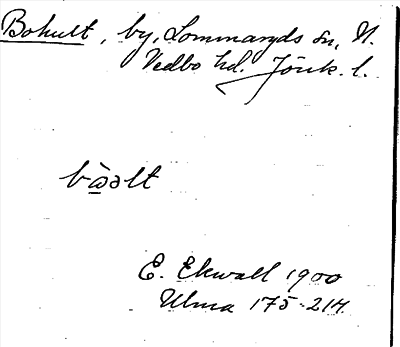 Bohult, by, Lommaryds sn, N.
Vedbo hd. Jönk. l.
bòəlt
E. Ekwall 1900
Ulma 175:214.